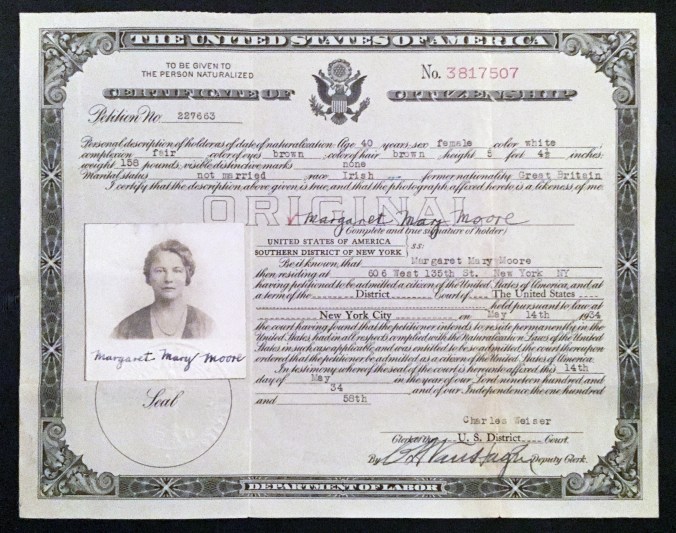 THE UNITED STATES OF AMERICA
TO BE GIVEN TO
THE PERSON NATURALIZED
No. 3817507
CERTIFICATE OF CITIZENSHIP
Petition No. 227663
Personal description of holder as of date of naturalization: Age 40 years; sex female color white
complexion fair color of eyes brown color of hair brown height 5 feet 4½ inches;
weight 158 pounds; visible distinctive marks none
Marital status not married race Irish former nationality Great Britain
I certify that the description above given is true, and that the photograph affixed hereto is a likeness of me.
ORIGINAL
Margaret Mary Moore
(Complete and true signature of holder)
UNITED STATES OF AMERICA
SOUTHERN DISTRICT OF NEW YORK
ss:
Be it known, that Margaret Mary Moore
then residing at 606 West 135th St. New York NY
having petitioned to be admitted a citizen of the United States of America, and at
a term of the District Court of The United States
held pursuant to law at
New York City on May 14th 1934
the court having found that the petitioner intends to reside permanently in the
United States, had in all respects complied with the Naturalization Laws of the United
States in such case applicable and was entitled to be so admitted, the court thereupon
ordered that the petitioner be admitted as a citizen of the United States of America.
In testimony whereof the seal of the court is hereunto affixed this 14th
day of May in the year of our Lord nineteen hundred and
34 and of our Independence the one hundred
and 58th
Margaret Mary Moore
Seal
Charles Weiser
Clerk of the U. S. District Court.
By Deputy Clerk.
DEPARTMENT OF LABOR